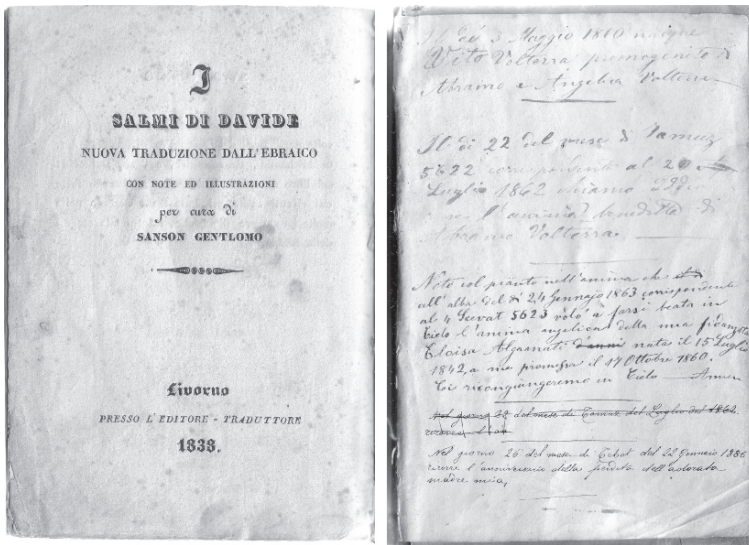 I
SALMI DI DAVIDE
NUOVA TRADUZIONE DALL'EBRAICO
CON NOTE ED ILLUSTRAZIONI
per cura di
SANSON GENTLOMO
Livorno
PRESSO L'EDITORE - TRADUTTORE
1838.
Il dì 3 Maggio 1860 nacque
Vito Volterra primogenito di
Abramo e Angelica Volterra
Il dì 22 del mese di Tamuz
5622 corrispondente al 20
Luglio 1862 Iddio
l'anima benedetta di
Abramo Volterra.
Noto col pianto nell'anima che
all'alba del dì 24 Gennajo 1863 corrispondente
al 4 Scevat 5623 volò a farsi beata in
Cielo l'anima angelica della mia fidanzata
Eloisa nata il 15 Luglio
1842, a me promessa il 17 Ottobre 1860.
Ci ricongiungeremo in Cielo — Amen
del mese di Tamuz del Luglio del 1862
Nel giorno 26 del mese di Tebet del 22 Gennaio 1886
ricorre l'anniversario della perdita dell'adorata
madre mia,